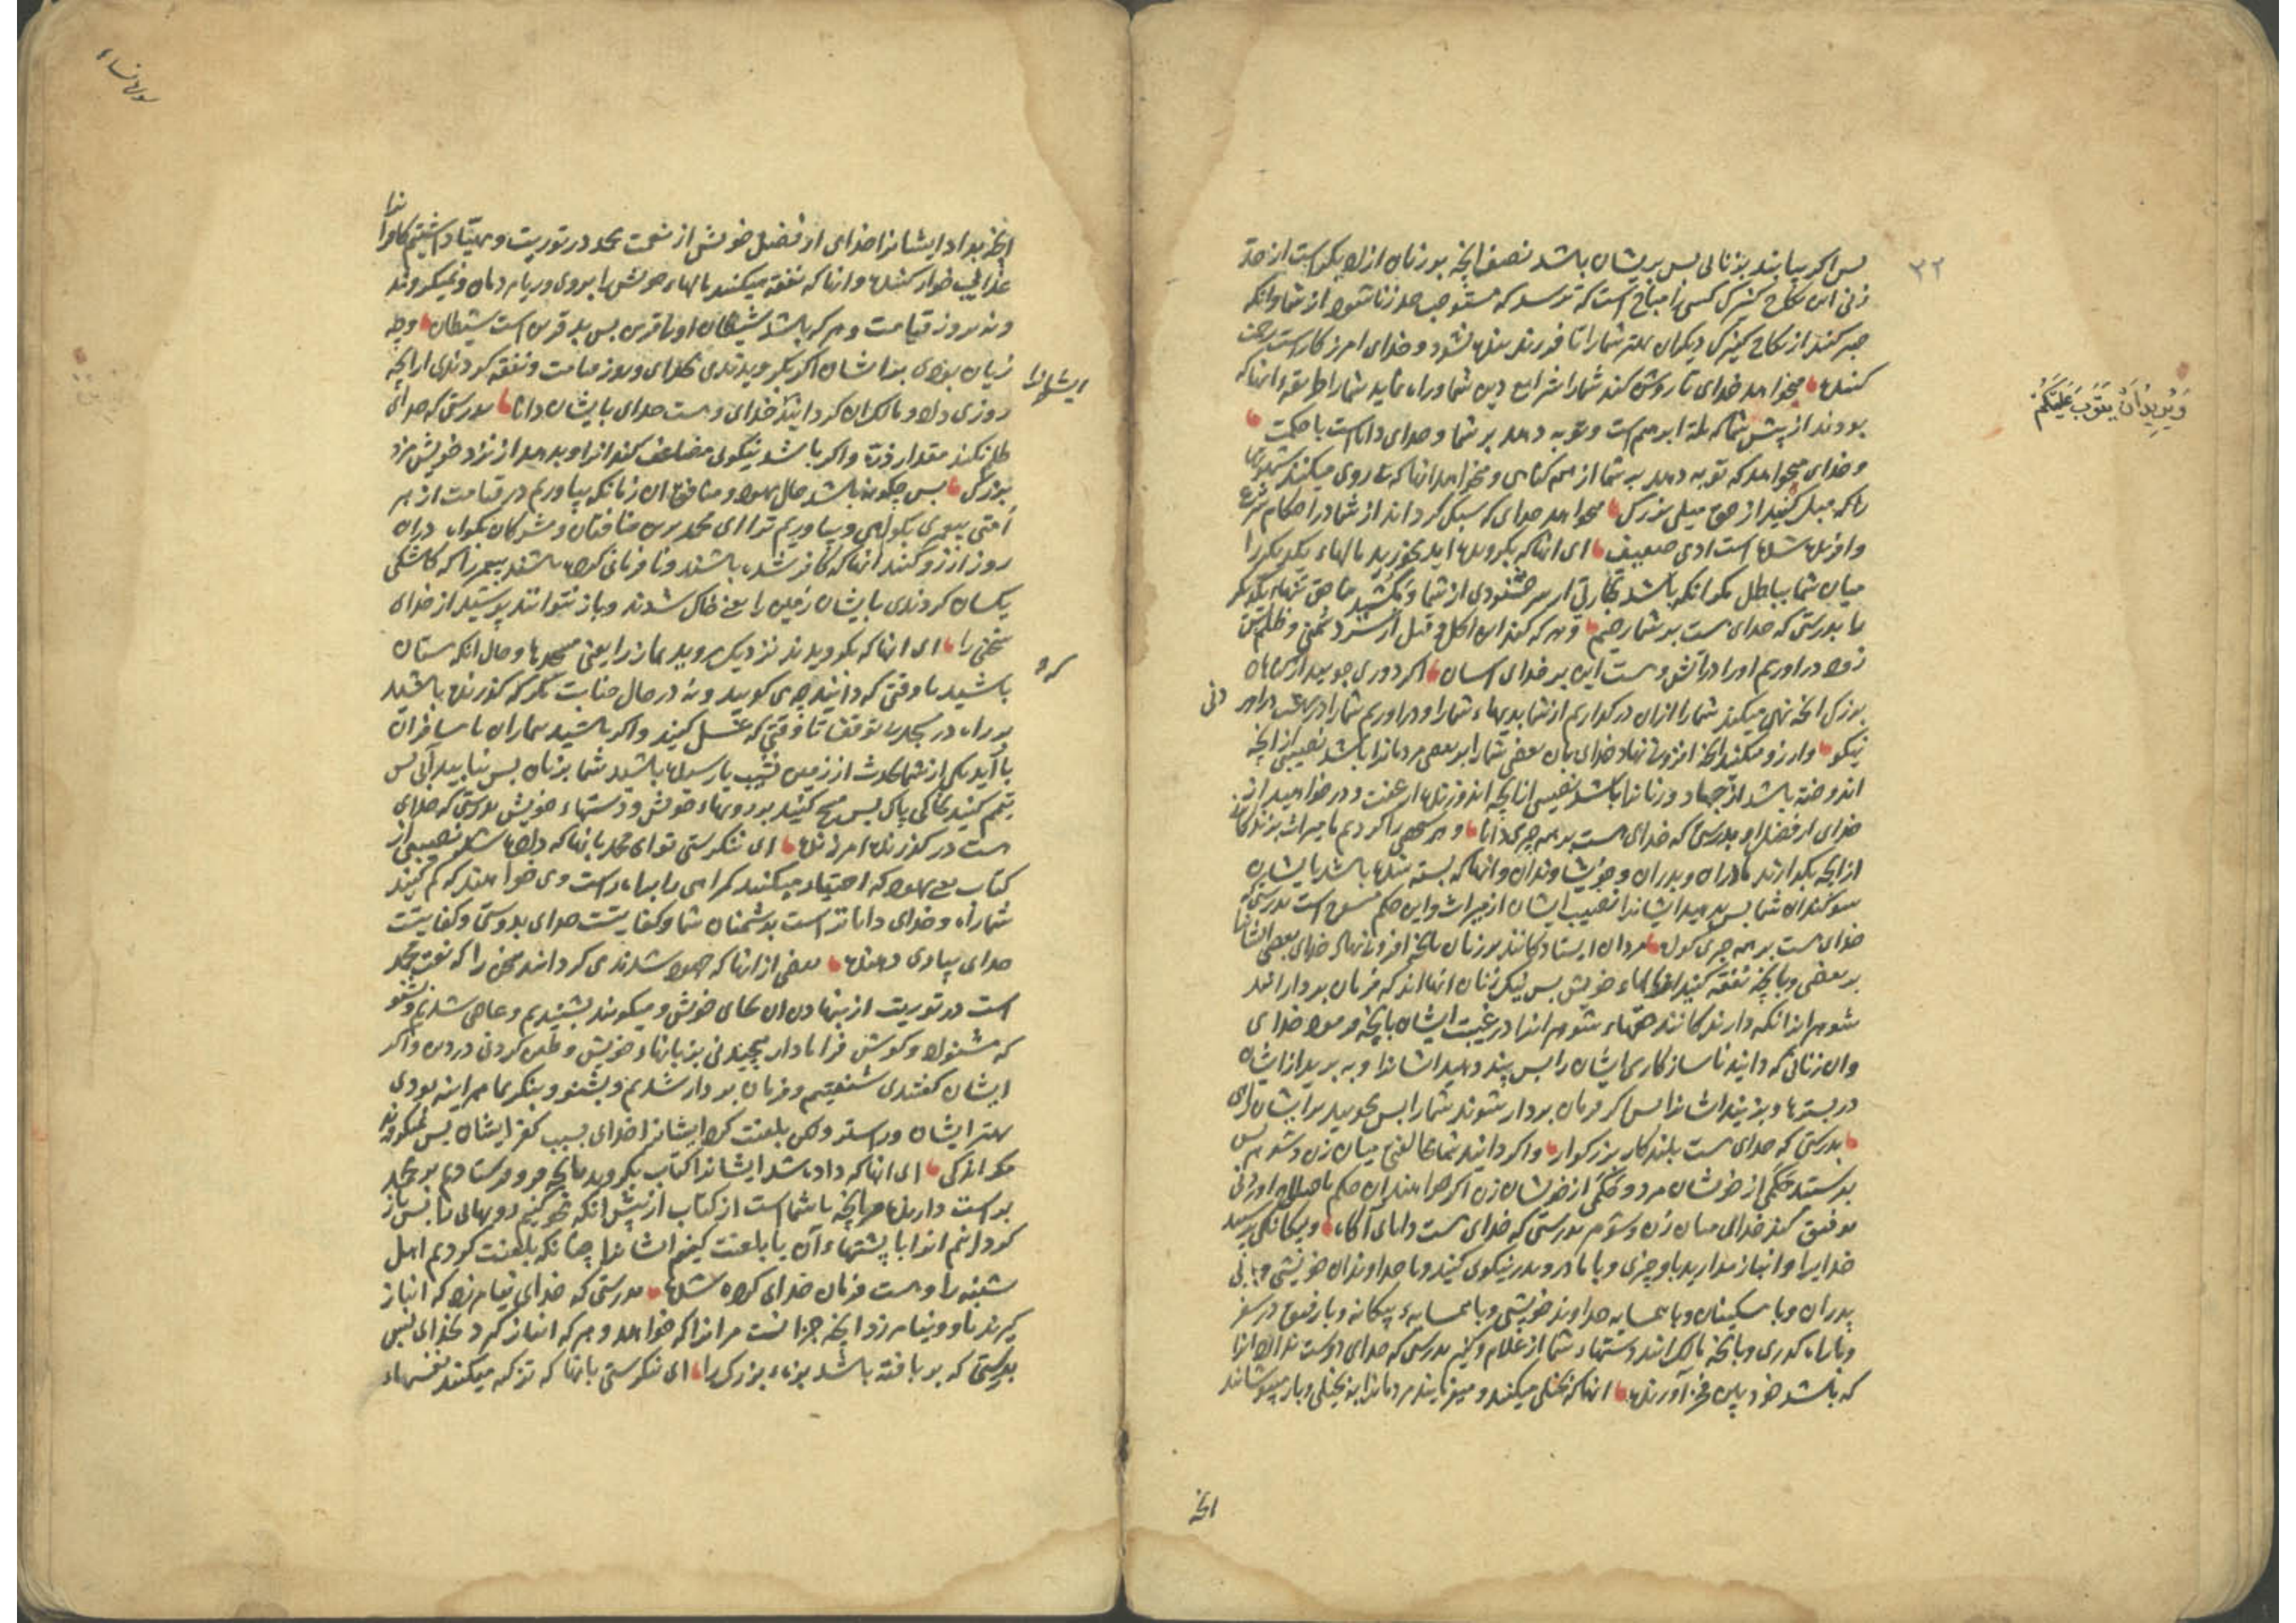 ٣٢
پس اکر بیایند بزنائی پس بریشان باشد نصف انچه بر زنان ازاد بکر است از حد
زنی این نکاح کنیزک کسی را مباح است که ترسد که مستوجب حد زنا شود از شما وانکه
صبر کنند از نکاح کنیزک دیکران بهتر شما را تا فرزند بنده نشود و خدای امرزکار است رحمت
کننده میخواهد خدای تا روشن کند شما را شرایع دین شما و راه نماید شما را طریقه انها که
بودند از پیش شما که ملة ابرهیم است و توبه دهد بر شما و خدای داناست با حکمت
وَیُرِیدُ اَنْ یَتُوبَ عَلَیْکُمْ
و خدای میخواهد که توبه دهد بر شما از همه کناهی و میخواهد انها که پی روی میکنند شهوتها
را که میل کنید از حق میلی بزرک میخواهد خدای که سبک کرداند از شما در احکام شرع
وافریده شده است ادمی ضعیف ای انها که بکرویده اید مخورید مالهاء یکدیکر را
میان شما بباطل مکر انکه باشد تجارتی از سر خشنودی از شما و مکشید بنا حق تنهاء یکدیکر
را بدرستی که خدای هست بر شما رحیم و هر که کند این اکل و قتل از سر دشمنی و ظلم پس
زود در اوریم او را در اتش و هست این بر خدای اسان اکر دوری جویید از کناهان
بزرک انچه نهی میکند شما را ازان در کذاریم از شما بدیهاء شما را و در اوریم شما را در بهشت در امدنی
نیکو و ارزو مکنید انچه افزونی نهاد خدای بان بعضی شما را بر بعضی مردانرا باشد نصیبی از انچه
اندوخته باشد از جهاد و زنانرا باشد نصیبی از انچه اندوزنده از عفت و در خواهید از
خدای از فضل او بدرستی که خدای هست بر همه چیزی دانا و هر کسی را کردیم تا میراث برندکان
از انچه بکذارند مادران و پدران و خویشاوندان و انها که بسته شده باشد بایشان
سوکندان شما پس بدهید ایشانرا نصیب ایشان از میراث و این حکم منسوخ است بدرستی که
خدای هست بر همه چیزی کواه مردان ایستادکانند بر زنان بانچه افزونی نهاد خدای بعضی ایشانرا
بر بعضی و بانچه نفقه کنند از مالهاء خویش پس نیک زنان انها اند که فرمان بردار اند
شوهرانرا نکه دارندکانند حقهاء شوهرانرا در غیبت ایشان بانچه فرمود خدای
وان زنانی که دانید ناسازکاری ایشان را پس پند دهید ایشانرا و ببرید از ایشان
در بسترها و بزنید ایشانرا پس اکر فرمان بردار شوند شما را پس مجویید بر ایشان راهی
بدرستی که خدای هست بلند کار بزرکوار و اکر دانید شما مخالفتی میان زن و شوهر پس
بفرستید حکمی از خویشان مرد و حکمی از خویشان زن اکر خواهند ان حکم با صلاح اوردنی
توفیق کند خدای میان زن و شوهر بدرستی که خدای هست دانای اکاه و بیکانکی پرستید
خدایرا و انباز میارید باو چیزی و با مادر و پدر نیکوی کنید و با خداوندان خویشی و با بی
پدران و با مسکینان و با همسایه خداوند خویشی و با همسایه بیکانه و با رفیق در سفر
و با راه کذری و با انچه مالک اند دستهاء شما از غلام و کنیز بدرستی که خدای دوست ندارد انرا
که باشد خود بین فخر اورنده انها که بخیلی میکنند و میفرمایند مردمانرا به بخیلی و باز میپوشانند
انچه
سوره نساء
انچه بداد ایشانرا خدای از فضل خویش از نعت محمد در توریت و مهیا داشتیم کافرانرا
عذابی خوار کننده و انها که نفقه میکنند مالهاء خویش را بروی و ریاء مردمان و نمیکروند
و نه بروز قیامت و هر که باشد شیطان او را قرین پس بد قرین است شیطان و چه
زیان بودی بر ایشان اکر بکرویدندی بخدای و بروز قیامت و نفقه کردندی از انچه
ایشانرا
روزی داد و مالک ان کردانید خدای و هست خدای بایشان دانا بدرستی که خدای
ظلم نکند مقدار ذره و اکر باشد نیکوی مضاعف کند انرا و بدهد از نزد خویش مزد
بزرک پس چکونه باشد حال یهود و منافقان ان زمانکه بیاوریم در قیامت از هر
امتی پیغمبری بکواهی و بیاوریم ترا ای محمد برین منافقان و مشرکان بکواه دران
روز ارزو کنند انها که کافر شده باشند و نافرمانی کرده باشند پیغمبر را که کاشکی
یکسان کردندی بایشان زمین را یعنی خاک شدند و باز نتوانند پوشید از خدای
سخنی را ای انها که بکرویدید نزدیک مروید نماز را یعنی مسجدها و حال انکه مستان
باشید تا وقتی که دانید چه می کویید و نه در حال جنابت مکر که کذرنده باشید
بر راه در مسجد بی توقف تا وقتی که غسل کنید و اکر باشید بیماران یا مسافران
یا اید یکی از شما بحدث از زمین نشیب یا رسیده باشید شما بزنان پس نیابید آبی پس
تیمم کنید بخاکی پاک پس مسح کنید بر رویهاء خویش و دستهاء خویش بدرستی که خدای
هست در کذرنده امرزنده ای ننکرستی تو ای محمد بانها که داده شدند نصیبی از
کتاب یعنی یهود که اختیار میکنند کمراهی را براه راست و می خواهند که کم کنید
شما راه و خدای داناتر است بدشمنان شما و کفایتست خدای بدوستی و کفایتست
خدای بیاری دهنده بعضی از انها که جهود شدندی کردانند سخن را که نعت محمد
است در توریت از نهادن ان بجای خویش و میکویند بشنیدیم و عاصی شدیم و بشنو
که مشنواد و کوش فرا ما دار پیچیدنی بزبانهاء خویش و طعن کردنی در دین و اکر
ایشان کفتندی شنفتیم و فرمان بردار شدیم و بشنو و بنکر بما هر اینه بودی
بهتر ایشان و راستر ولکن بلعنت کرد ایشانرا خدای بسبب کفر ایشان پس نمیکروند
مکر اندکی ای انها که داده شد ایشانرا کتاب بکروید بانچه فرو فرستادیم بر محمد
براست دارنده مر انچه با شماست از کتاب از پیش انکه محو کنیم رویهائی را پس باز
کردانیم انرا با پشتهاء ان یا بلعنت کنیم ایشانرا چنانکه بلعنت کردیم اهل
شنبه را و هست فرمان خدای کرده شده بدرستی که خدای نیامرزد که انباز
کیرند باو و بیامرزد انچه جز انست مر انرا که خواهد و هر که انباز کیرد بخدای پس
بدرستی که بر بافته باشد بزه بزرک را ای ننکرستی بانها که تزکیه میکنند نفسهاء